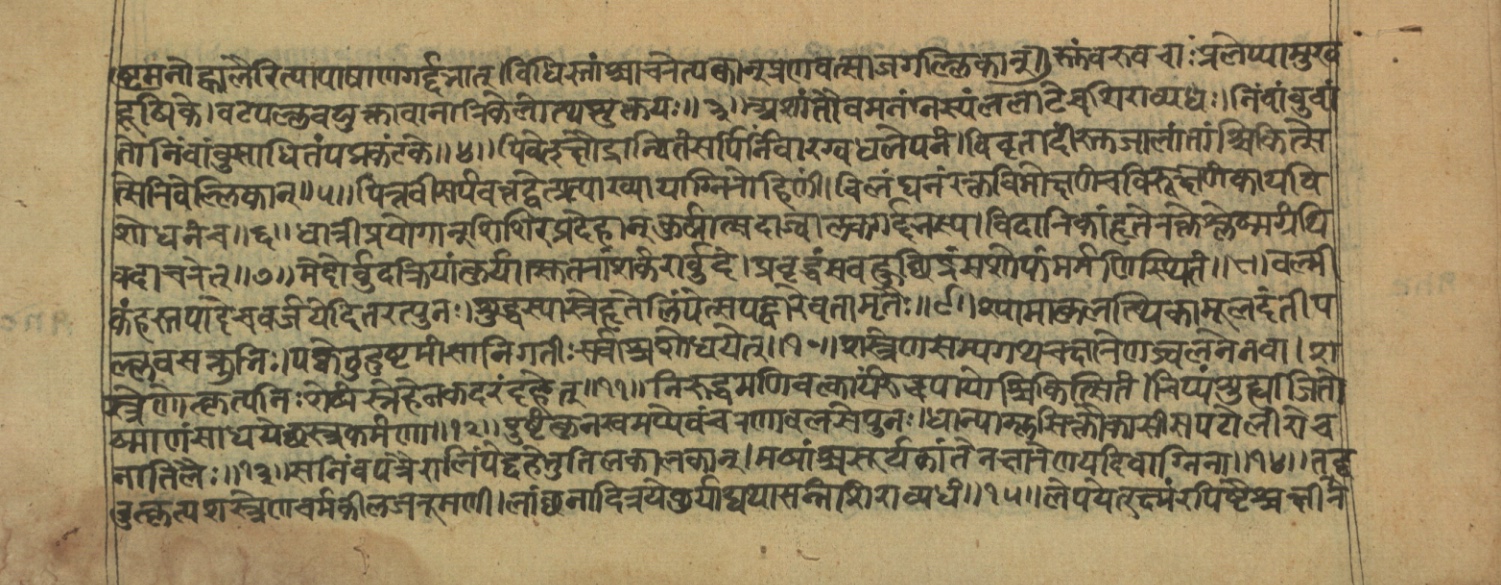 ष्टमनोह्वालैरित्यापाषाणगर्द्दभात्।विधिस्तांश्चाचरेत्पक्वान्व्रणवत्साजगल्लिकान्॥ क्तंवरुवचाःप्रलेप्पासुख
दूषिके।वटपल्लवयुक्तावानारिकेलोत्थशुक्तयः॥३॥अशांतौवमनंनस्यंललाटेचशिराव्यधः।निंबांबुवां
तोनिंबांबुसाधितंपद्मकंटके॥४॥पिबेत्क्षौद्रान्वितंसर्पिर्निंबारग्वधलेपनं।विवृतादींस्तजालांतांश्चिकित्से
त्सेरिवेल्लिकान्॥५॥पित्तवीसर्पवत्तद्वत्प्रत्याख्यायाग्निरोहिणीं।विलंघनंरक्तविमोक्षणंचविरूक्षणंकायवि
शोधनंच॥६॥धात्रीप्रयोगान्शिशिरप्रदेहान्कुर्यात्सदाज्वालकगर्दभस्य।विदारिकांहृतेरक्तेश्लेष्मग्रंथि
वदाचरेत्॥७॥मेदोर्बुदक्रियांकुर्यात्सुतरांशर्करार्बुदे।प्रवृद्धंसुबहुछिद्रंसशोफंमर्मणिस्थितं॥८॥वल्मी
कंहस्तपादेचवर्जयेदितरत्पुनः।शुद्धस्यास्रेहृतेलिंपेत्सपट्वारेवतामृतैः॥९॥श्यामाकुलत्थिकामूलदंतीप
ललसक्तुभिः।पक्वेतुदुष्टमांसानिगतीःसर्वाश्चशोधयेत्॥१०॥शस्त्रेणसम्यगथचक्षारेणज्वलनेनवा।श
स्त्रेणोत्कृत्यनिःशेषंस्नेहेनकदरंदहेत्॥११॥निरुद्धमणिवत्कार्यंरुद्धपायोश्चिकित्सितं।चिप्पंशुद्ध्याजितो
ष्माणंसाधयेच्छस्त्रकर्मणा॥१२॥दुष्टंकुनखमप्येवंचरणावलसेपुनः।धान्याम्लसिक्तौकासीसपटोलीरोच
नातिलैः॥१३॥सनिंबपत्रैरालिंपेद्दहेत्तुतिलकालकान्।मषांश्चसूर्यकांतेनक्षारेणयदिवाग्निना॥१४॥तद्व
दुत्कृत्यशस्त्रेणचर्मकीलजतूमणी।लांछनादित्रयेकुर्याद्यथासन्नंशिराव्यधं॥१५॥लेपयेत्क्षीरपिष्टैश्चक्षीरि